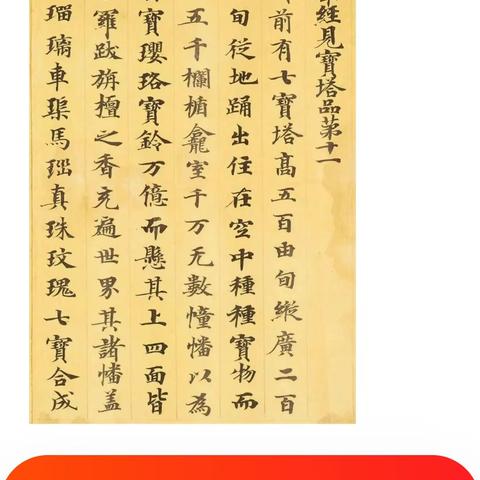 經見寶塔品第十一
前有七寶塔高五百由旬縱廣二百
旬從地踊出住在空中種種寶物而
五千欄楯龕室千万无數幢幡以為
寶瓔珞寶鈴万億而懸其上四面皆
羅跋旃檀之香充遍世界其諸幡盖
瑠璃車渠馬瑙真珠玟瑰七寶合成